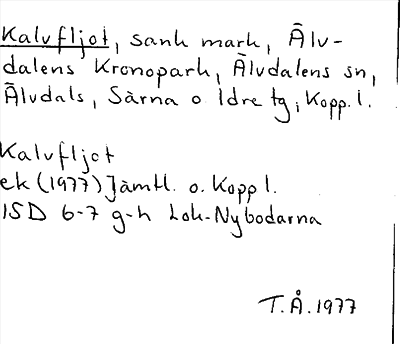 Kalvfljot, sank mark, Älv-
dalens Kronopark, Älvdalens sn,
Älvdals, Särna o Idre tg, Kopp. l.
Kalvfljot
ek (1977) Jämtl. o. Kopp l.
ISD 6-7 g-h Lok-Nybodarna
T.Å. 1977